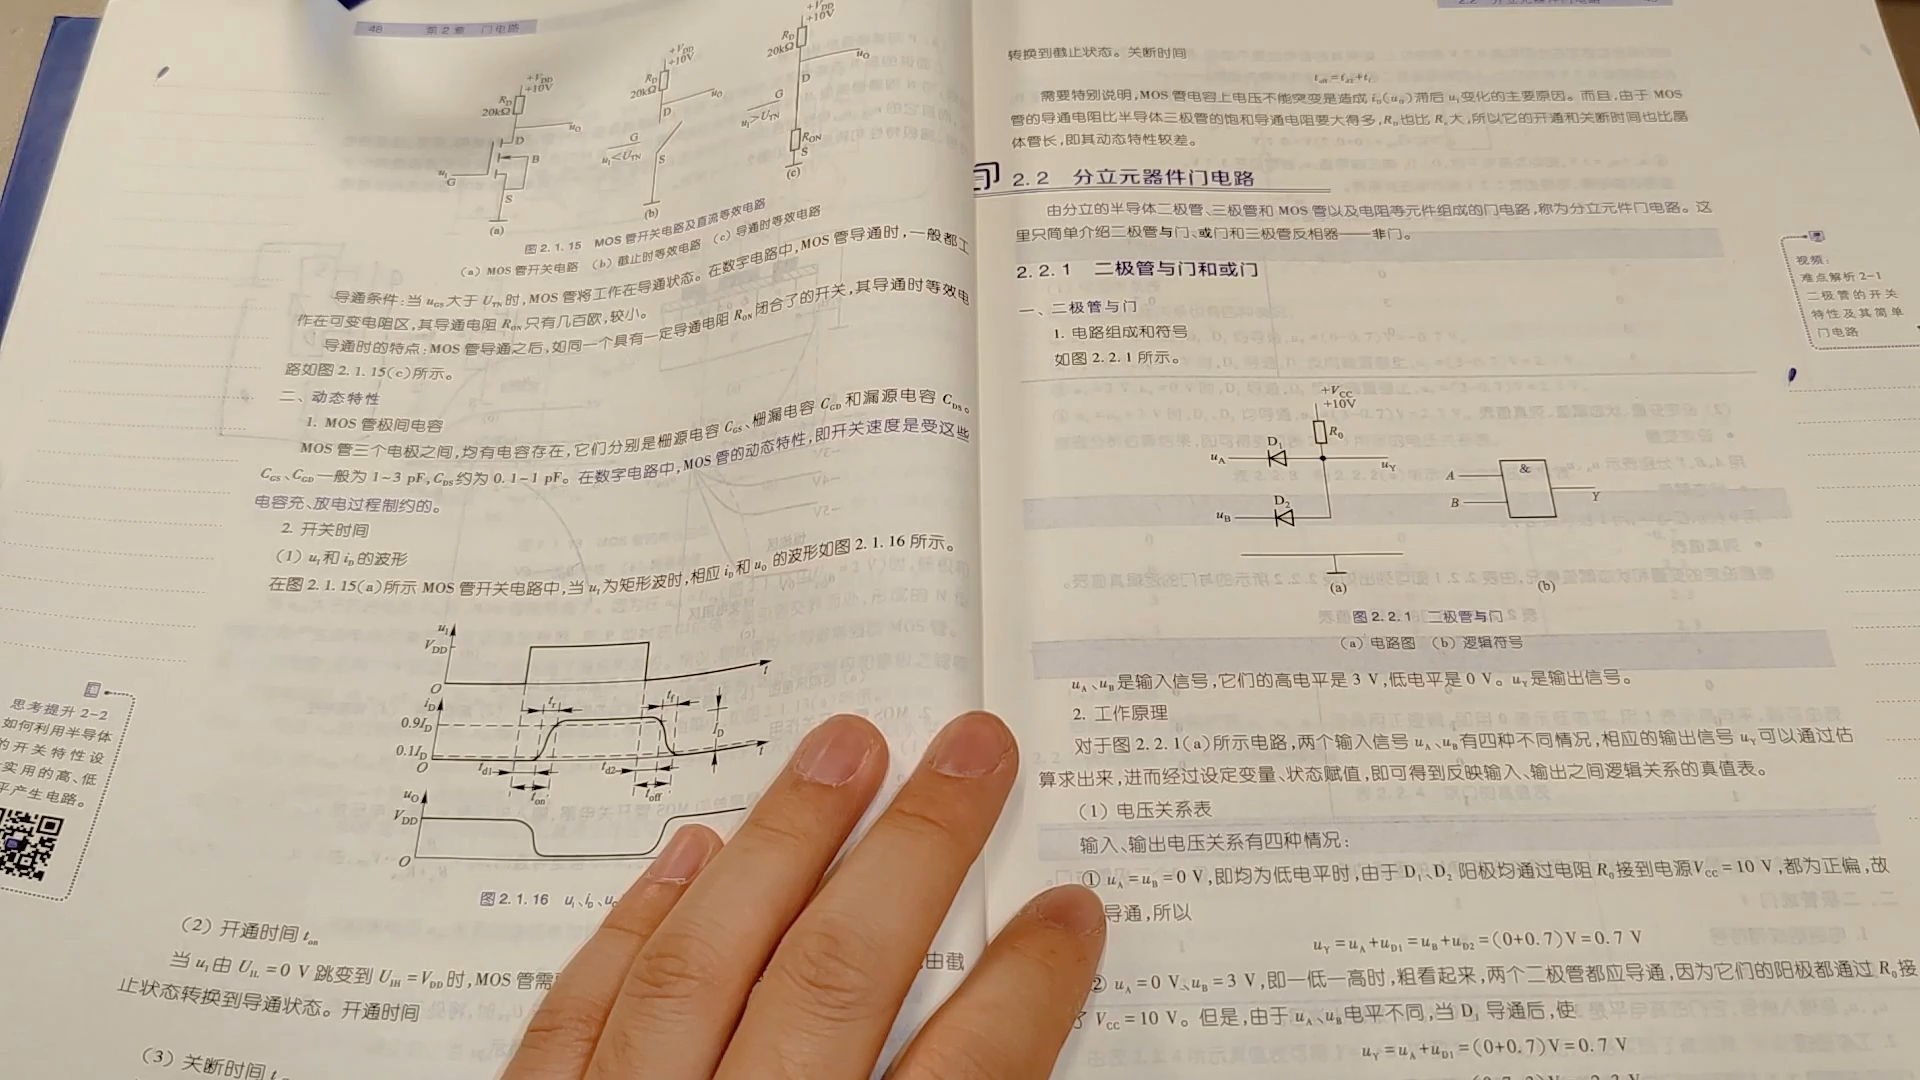 48 第2章 门电路
+VDD
+10V
RD
20kΩ
D
uO
uI
G
B
S
(a)
+VDD
+10V
RD
20kΩ
uO
D
G
uI<UTN
S
(b)
+VDD
+10V
RD
20kΩ
uO
D
G
uI>UTN
RON
S
(c)
图2.1.15 MOS管开关电路及直流等效电路
(a) MOS管开关电路 (b) 截止时等效电路 (c) 导通时等效电路
导通条件:当 uGS 大于 UTN 时,MOS 管将工作在导通状态。在数字电路中,MOS 管导通时,一般都工
作在可变电阻区,其导通电阻 RON 只有几百欧,较小。
导通时的特点:MOS 管导通之后,如同一个具有一定导通电阻 RON 闭合了的开关,其导通时等效电
路如图 2.1.15(c)所示。
二、动态特性
1. MOS 管极间电容
MOS 管三个电极之间,均有电容存在,它们分别是栅源电容 CGS、栅漏电容 CGD 和漏源电容 CDS。
CGS、CGD 一般为 1~3 pF,CDS 约为 0.1~1 pF。在数字电路中,MOS 管的动态特性,即开关速度是受这些
电容充、放电过程制约的。
2. 开关时间
(1) uI 和 iD 的波形
在图 2.1.15(a)所示 MOS 管开关电路中,当 uI 为矩形波时,相应 iD 和 uO 的波形如图 2.1.16 所示。
uI
VDD
O
t
iD
0.9ID
0.1ID
O
tr
tf
ID
t
td1
td2
ton
toff
uO
VDD
O
图2.1.16 uI、iD、uO
(2) 开通时间 ton
当 uI 由 UIL=0 V 跳变到 UIH=VDD 时,MOS 管需 由截
止状态转换到导通状态。开通时间
(3) 关断时间
思考提升 2-2
如何利用半导体
的开关特性设
实用的高、低
平产生电路。
2.2 分立元器件门电路
转换到截止状态。关断时间
toff=td2+tf
需要特别说明,MOS 管电容上电压不能突变是造成 iD(uO)滞后 uI 变化的主要原因。而且,由于 MOS
管的导通电阻比半导体三极管的饱和导通电阻要大得多,RD 也比 Rc 大,所以它的开通和关断时间也比晶
体管长,即其动态特性较差。
2.2 分立元器件门电路
由分立的半导体二极管、三极管和 MOS 管以及电阻等元件组成的门电路,称为分立元件门电路。这
里只简单介绍二极管与门、或门和三极管反相器——非门。
2.2.1 二极管与门和或门
一、二极管与门
1. 电路组成和符号
如图 2.2.1 所示。
+VCC
+10V
R0
D1
uA
uY
D2
uB
(a)
A
B
&
Y
(b)
图2.2.1 二极管与门
(a) 电路图 (b) 逻辑符号
uA、uB 是输入信号,它们的高电平是 3 V,低电平是 0 V。uY 是输出信号。
2. 工作原理
对于图 2.2.1(a)所示电路,两个输入信号 uA、uB 有四种不同情况,相应的输出信号 uY 可以通过估
算求出来,进而经过设定变量、状态赋值,即可得到反映输入、输出之间逻辑关系的真值表。
(1) 电压关系表
输入、输出电压关系有四种情况:
① uA=uB=0 V,即均为低电平时,由于 D1、D2 阳极均通过电阻 R0 接到电源 VCC=10 V,都为正偏,故
导通,所以
uY=uA+uD1=uB+uD2=(0+0.7)V=0.7 V
② uA=0 V、uB=3 V,即一低一高时,粗看起来,两个二极管都应导通,因为它们的阳极都通过 R0 接
了 VCC=10 V。但是,由于 uA、uB 电平不同,当 D1 导通后,使
uY=uA+uD1=(0+0.7)V=0.7 V
视频:
难点解析 2-1
二极管的开关
特性及其简单
门电路